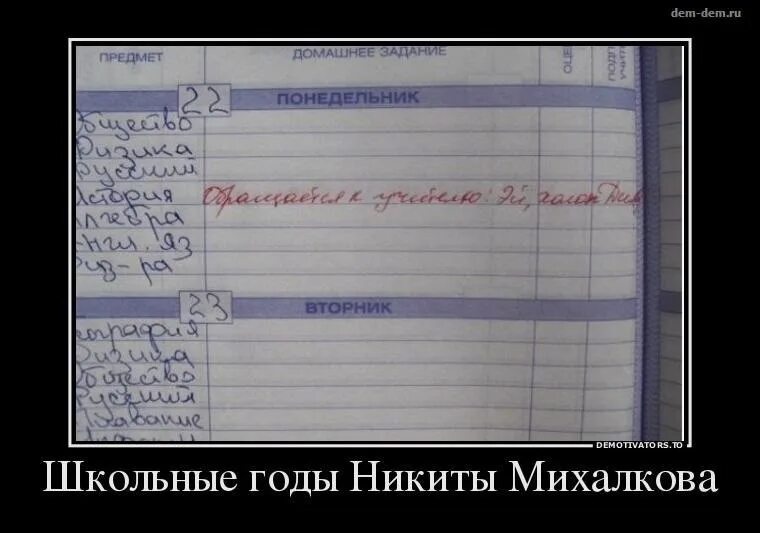 dem-dem.ru
ПРЕДМЕТ ДОМАШНЕЕ ЗАДАНИЕ ОЦЕ ПОДП УЧИТ
22 ПОНЕДЕЛЬНИК
бщество
Физика
Русский
История Обращается к учителю: Эй, холоп
лгебра
нгл. яз
из-ра
23 ВТОРНИК
еография
Физика
Общество
Русский
лавание
DEMOTIVATORS.TO
Школьные годы Никиты Михалкова